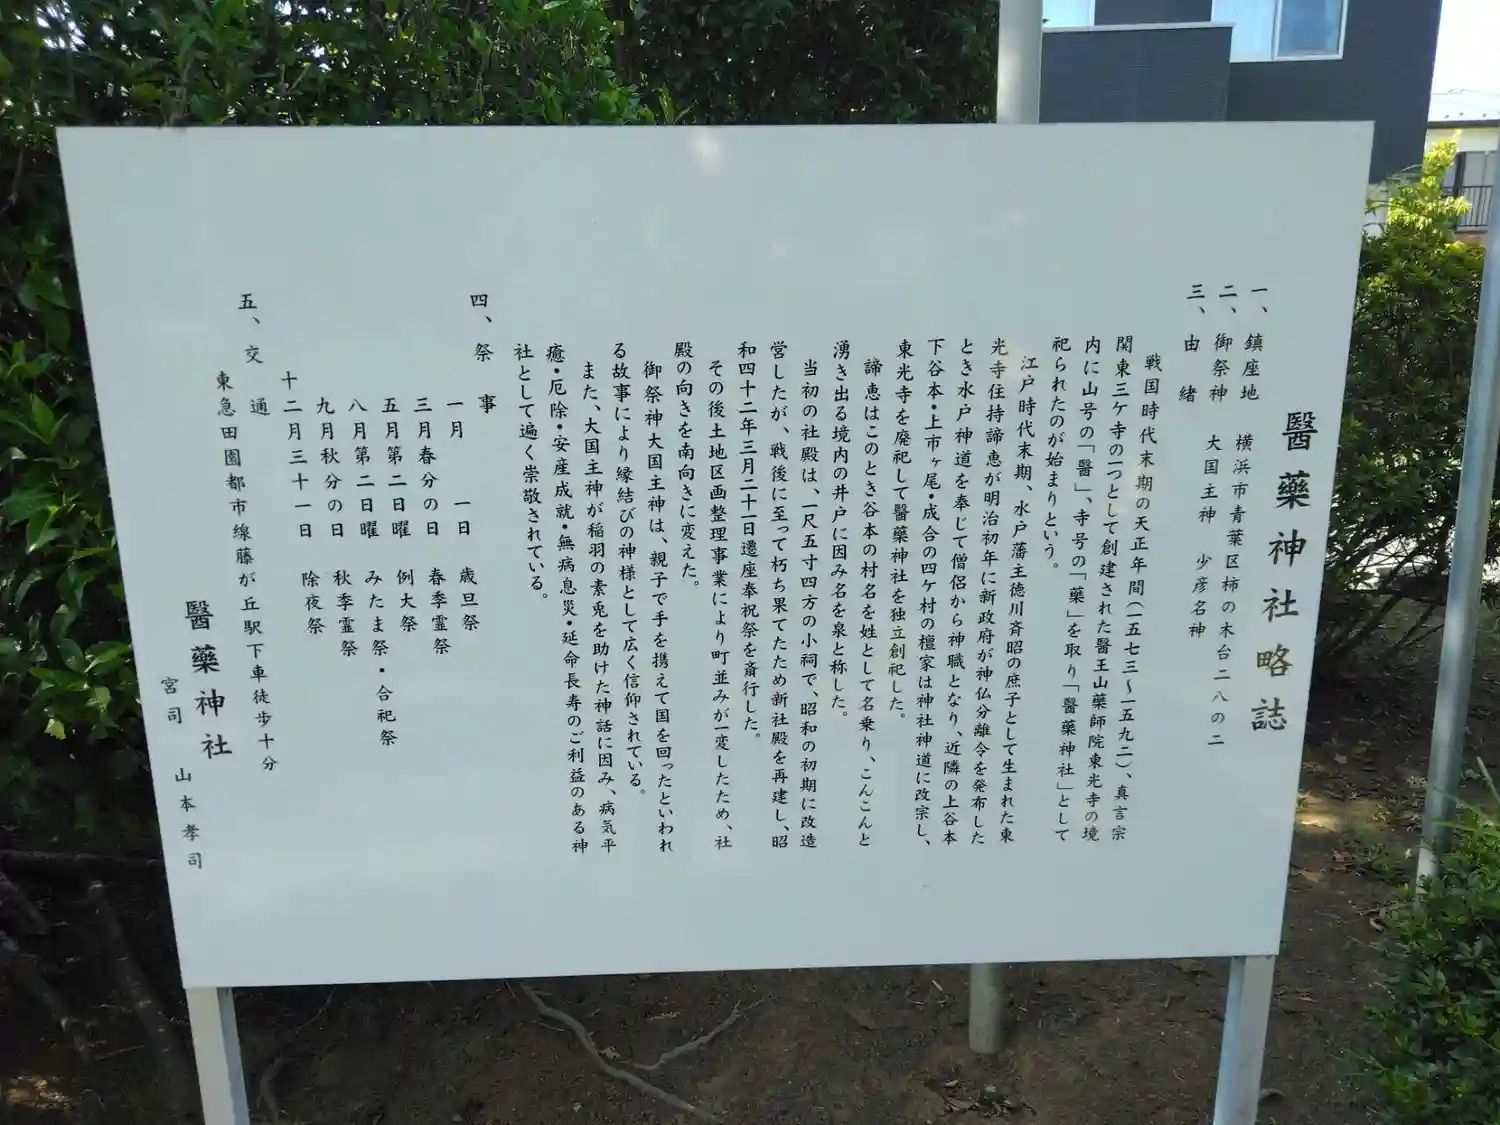 醫藥神社略誌
一、鎮座地　横浜市青葉区柿の木台二八の二
二、御祭神　大国主神　少彦名神
三、由緒
戦国時代末期の天正年間（一五七三～一五九二）、真言宗
関東三ケ寺の一つとして創建された醫王山藥師院東光寺の境
内に山号の「醫」、寺号の「藥」を取り「醫藥神社」として
祀られたのが始まりという。
江戸時代末期、水戸藩主徳川斉昭の庶子として生まれた東
光寺住持諦恵が明治初年に新政府が神仏分離令を発布した
とき水戸神道を奉じて僧侶から神職となり、近隣の上谷本
下谷本・上市ヶ尾・成合の四ケ村の檀家は神社神道に改宗し、
東光寺を廃祀して醫藥神社を独立創祀した。
諦恵はこのとき谷本の村名を姓として名乗り、こんこんと
湧き出る境内の井戸に因み名を泉と称した。
当初の社殿は、一尺五寸四方の小祠で、昭和の初期に改造
営したが、戦後に至って朽ち果てたため新社殿を再建し、昭
和四十二年三月二十一日遷座奉祝祭を斎行した。
その後土地区画整理事業により町並みが一変したため、社
殿の向きを南向きに変えた。
御祭神大国主神は、親子で手を携えて国を回ったといわれ
る故事により縁結びの神様として広く信仰されている。
また、大国主神が稲羽の素兎を助けた神話に因み、病気平
癒・厄除・安産成就・無病息災・延命長寿のご利益のある神
社として遍く崇敬されている。
四、祭事
一月　一日　歳旦祭
三月春分の日　春季霊祭
五月第二日曜　例大祭
八月第二日曜　みたま祭・合祀祭
九月秋分の日　秋季霊祭
十二月三十一日　除夜祭
五、交通
東急田園都市線藤が丘駅下車徒歩十分
醫藥神社
宮司　山本孝司